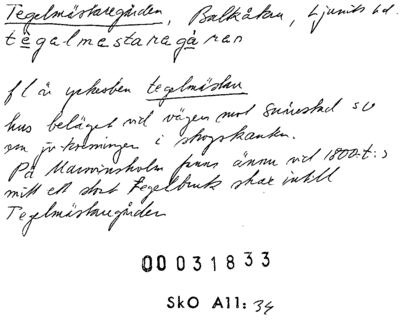 Tegelmästaregården, Balkåkra, Ljunits hd.
tegalmestaragåren
fl är yrkesben tegelmästare
hus beläget vid vägen mot Snårestad so
om jv-korsningen i skogskanten.
På Marsvinsholm fanns ännu vid 1800-t:s
mitt ett stort tegelbruk strax intill
Tegelmästaregården
00031833
SkO All: 34